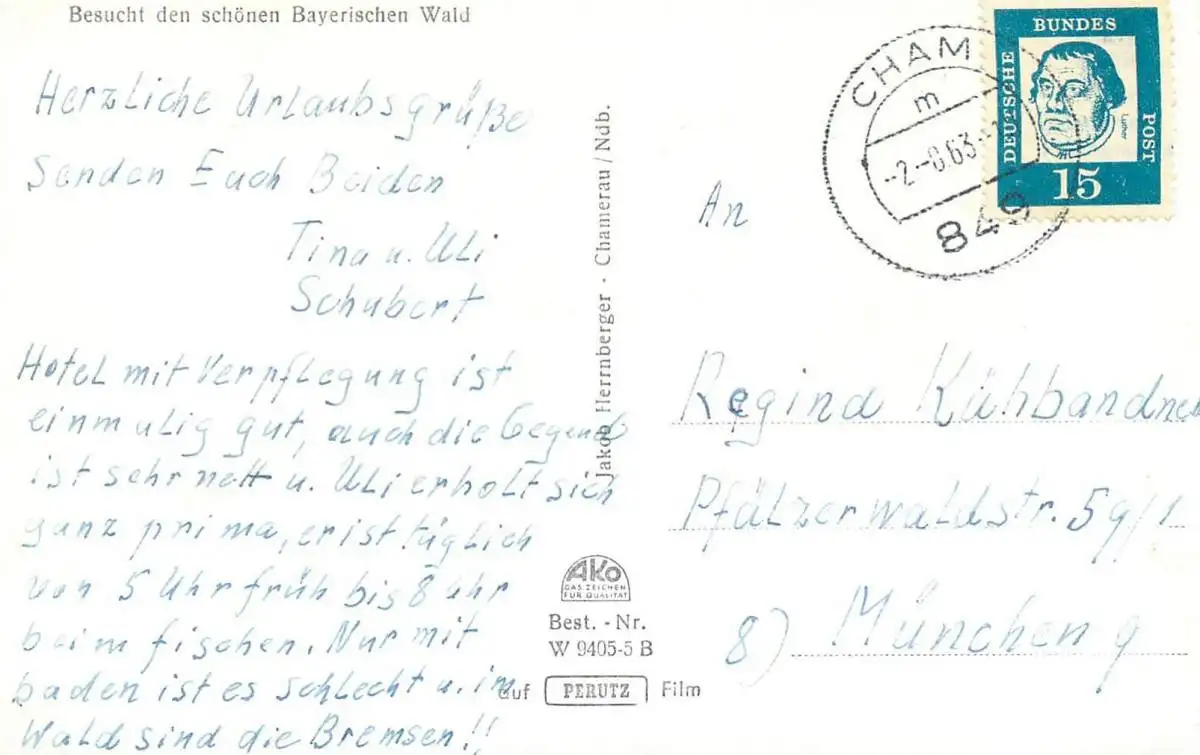 Besucht den schönen Bayerischen Wald
Herzliche Urlaubsgrüße
senden Euch Beiden
Tina u. Uli
Schubert
Hotel mit Verpflegung ist
einmalig gut, auch die Gegend
ist sehr nett u. Uli erholt sich
ganz prima, er ist täglich
von 5 Uhr früh bis 8 Uhr
beim fischen. Nur mit
baden ist es schlecht u. im
Wald sind die Bremsen!!
Jakob Herrnberger · Chamerau / Ndb.
AKO
DAS ZEICHEN
FÜR QUALITÄT
Best. - Nr.
W 9405-5 B
auf PERUTZ Film
CHAM
m
849
DEUTSCHE
BUNDES
POST
Luther
15
An
Regina Kühbandner
Pfälzerwaldstr. 59/1
8) München 9